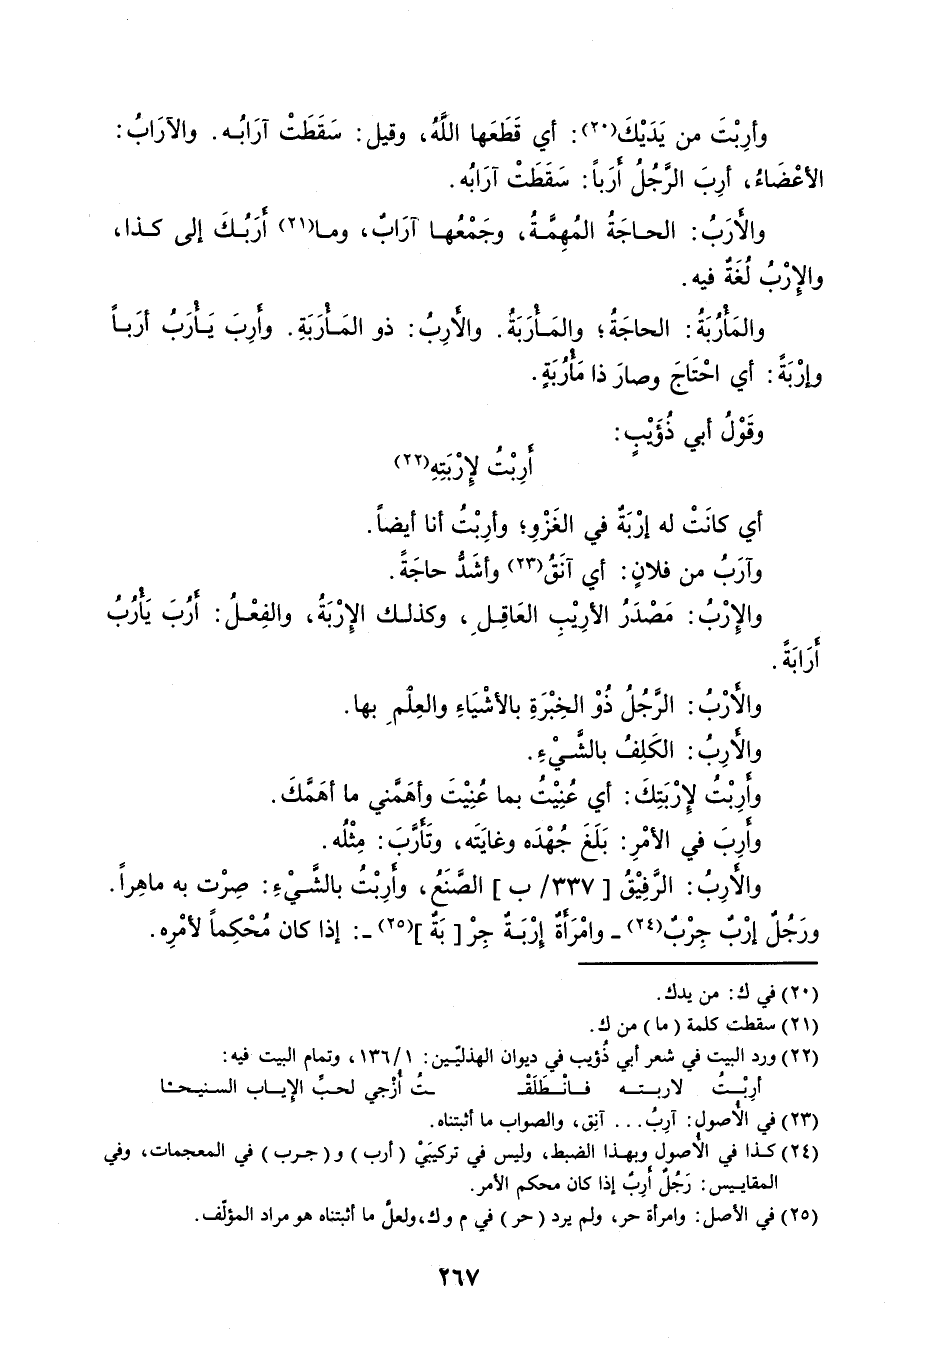 وأرِبْتَ من يَدَيْكَ(٢٠): أي قَطَعَها اللَّهُ، وقيل: سَقَطَتْ آرَابُه. والآرَابُ:
الأعْضَاءُ، أرِبَ الرَّجُلُ أَرَباً: سَقَطَتْ آرَابُه.
والأَرَبُ: الحاجَةُ المُهِمَّةُ، وجَمْعُها آرَابٌ، وما(٢١) أَرَبُكَ إلى كذا،
والإِرْبُ لُغَةٌ فيه.
والمَأْرُبَةُ: الحاجَةُ؛ والمَأْرَبَةُ. والأَرِبُ: ذو المَأْرَبَةِ. وأَرِبَ يَأْرَبُ أرَباً
وإرْبَةً: أي احْتَاجَ وصارَ ذا مَأْرُبَةٍ.
وقَوْلُ أبي ذُؤَيْبٍ:
أَرِبْتُ لإِرْبَتِهِ(٢٢)
أي كانَتْ له إرْبَةٌ في الغَزْوِ؛ وأرِبْتُ أنا أيضاً.
وآرَبُ من فلانٍ: أي آنَقُ(٢٣) وأشَدُّ حاجَةً.
والإِرْبُ: مَصْدَرُ الأرِيْبِ العَاقِلِ، وكذلك الإِرْبَةُ، والفِعْلُ: أَرُبَ يَأْرُبُ
أَرَابَةً.
والأَرْبُ: الرَّجُلُ ذُوْ الخِبْرَةِ بالأشْيَاءِ والعِلْمِ بها.
والأَرِبُ: الكَلِفُ بالشَّيْءِ.
وأَرِبْتُ لإِرْبَتِكَ: أي عُنِيْتُ بما عُنِيْتَ وأهَمَّني ما أهَمَّكَ.
وأَرِبَ في الأمْرِ: بَلَغَ جُهْدَه وغايَتَه، وتَأَرَّبَ: مِثْلُه.
والأَرِبُ: الرَّفِيْقُ [ ٣٣٧/ ب ] الصَّنَعُ، وأَرِبْتُ بالشَّيْءِ: صِرْت به ماهِراً.
ورَجُلٌ إرْبٌ جِرْبٌ(٢٤) ـ وامْرَأَةٌ إرْبَةٌ جِرْ[ بَةٌ ](٢٥) ـ: إذا كان مُحْكِماً لأمْرِه.
(٢٠) في ك: من يدك.
(٢١) سقطت كلمة ( ما ) من ك.
(٢٢) ورد البيت في شعر أبي ذُؤيب في ديوان الهذليّين: ١٣٦/١، وتمام البيت فيه:
أرِبْتُ لاربته فانْطَلَقْـ ـتُ أُزْجي لحبّ الإِياب السنيحا
(٢٣) في الأصول: آربُ... آنِق، والصواب ما أثبتناه.
(٢٤) كذا في الأصول وبهذا الضبط، وليس في تركيبَيْ ( أرب ) و( جرب ) في المعجمات، وفي
المقاييس: رَجُلٌ أَرِبٌ إذا كان محكم الأمر.
(٢٥) في الأصل: وامرأة حر، ولم يرد ( حر ) في م و ك،ولعلَّ ما أثبتناه هو مراد المؤلّف.
٢٦٧